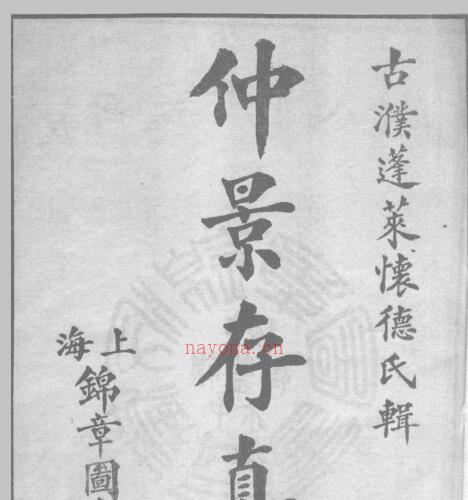 古濮蓬萊懷德氏輯
仲景存真
上海
錦章圖
nayona.cn